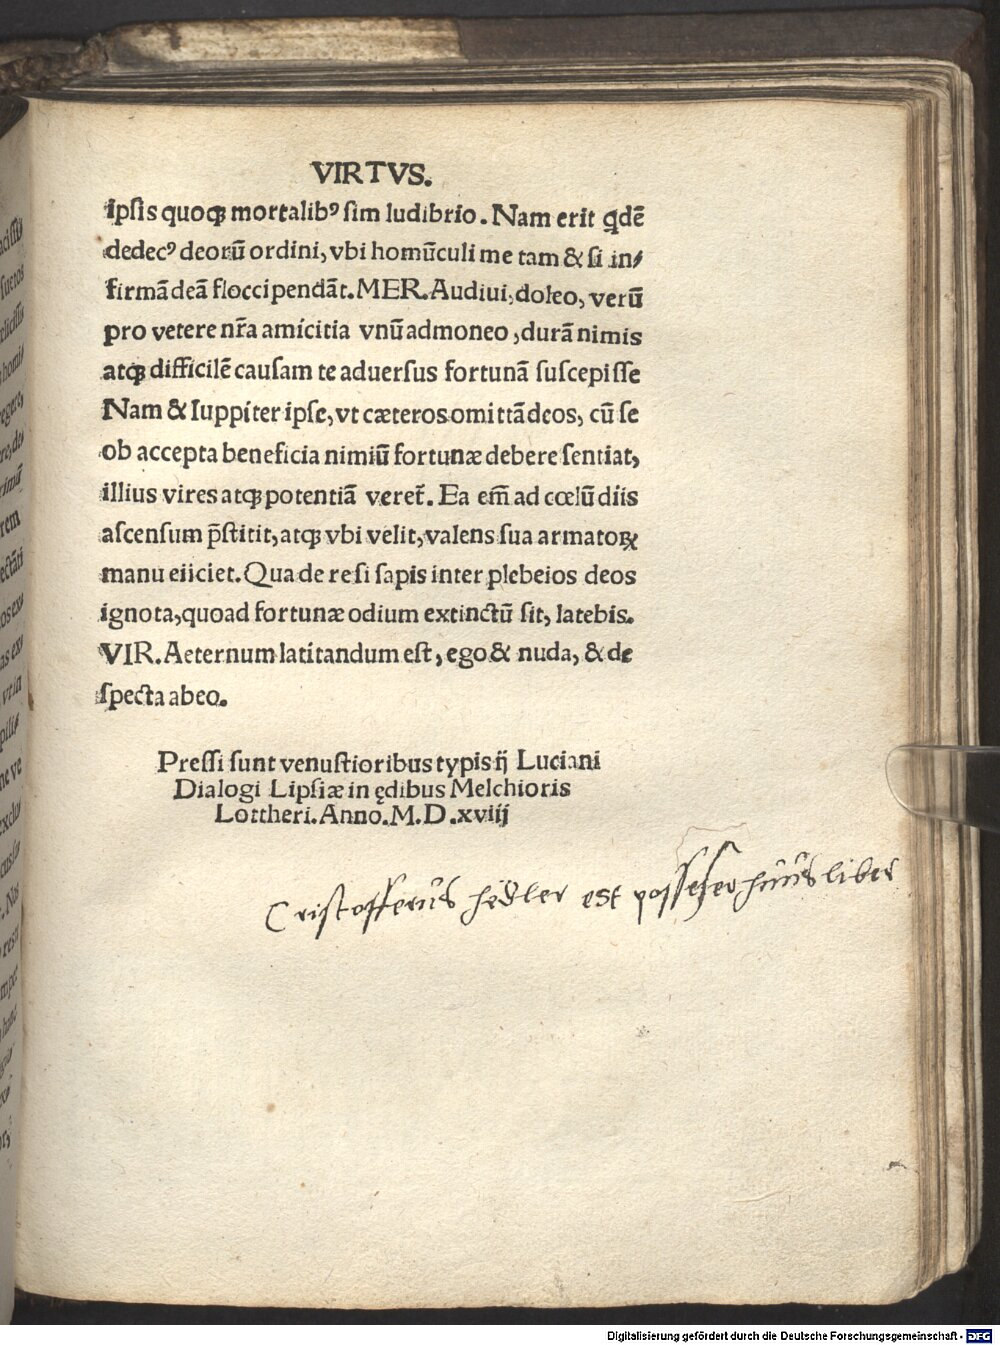 VIRTVS.
ipſis quoqꝫ mortalibꝰ ſim ludibrio. Nam erit qdẽ
dedecꝰ deorũ ordini, vbi homũculi me tam & ſi in⸗
firmã deã floccipendãt. MER. Audiui, doleo, verũ
pro vetere nr̃a amicitia vnũ admoneo, durã nimis
atqꝫ difficilẽ cauſam te aduerſus fortunã ſuſcepiſſe
Nam & Iuppiter ipſe, vt cæteros omittã deos, cũ ſe
ob accepta beneficia nimiũ fortunæ debere ſentiat,
illius vires atqꝫ potentiã veret᷑. Ea em̃ ad cœlũ diis
aſcenſum p̃ſtitit, atqꝫ vbi velit, valens ſua armatoꝝ
manu eiiciet. Qua de re ſi ſapis inter plebeios deos
ignota, quoad fortunæ odium extinctũ ſit, latebis.
VIR. Aeternum latitandum eſt, ego & nuda, & de
ſpecta abeo.
Preſſi ſunt venuſtioribus typis ij Luciani
Dialogi Lipſiæ in ędibus Melchioris
Lottheri. Anno. M. D. xviij
Criſtofferus hedler est poſſeſſer huius liber
Digitalisierung gefördert durch die Deutsche Forschungsgemeinschaft - DFG